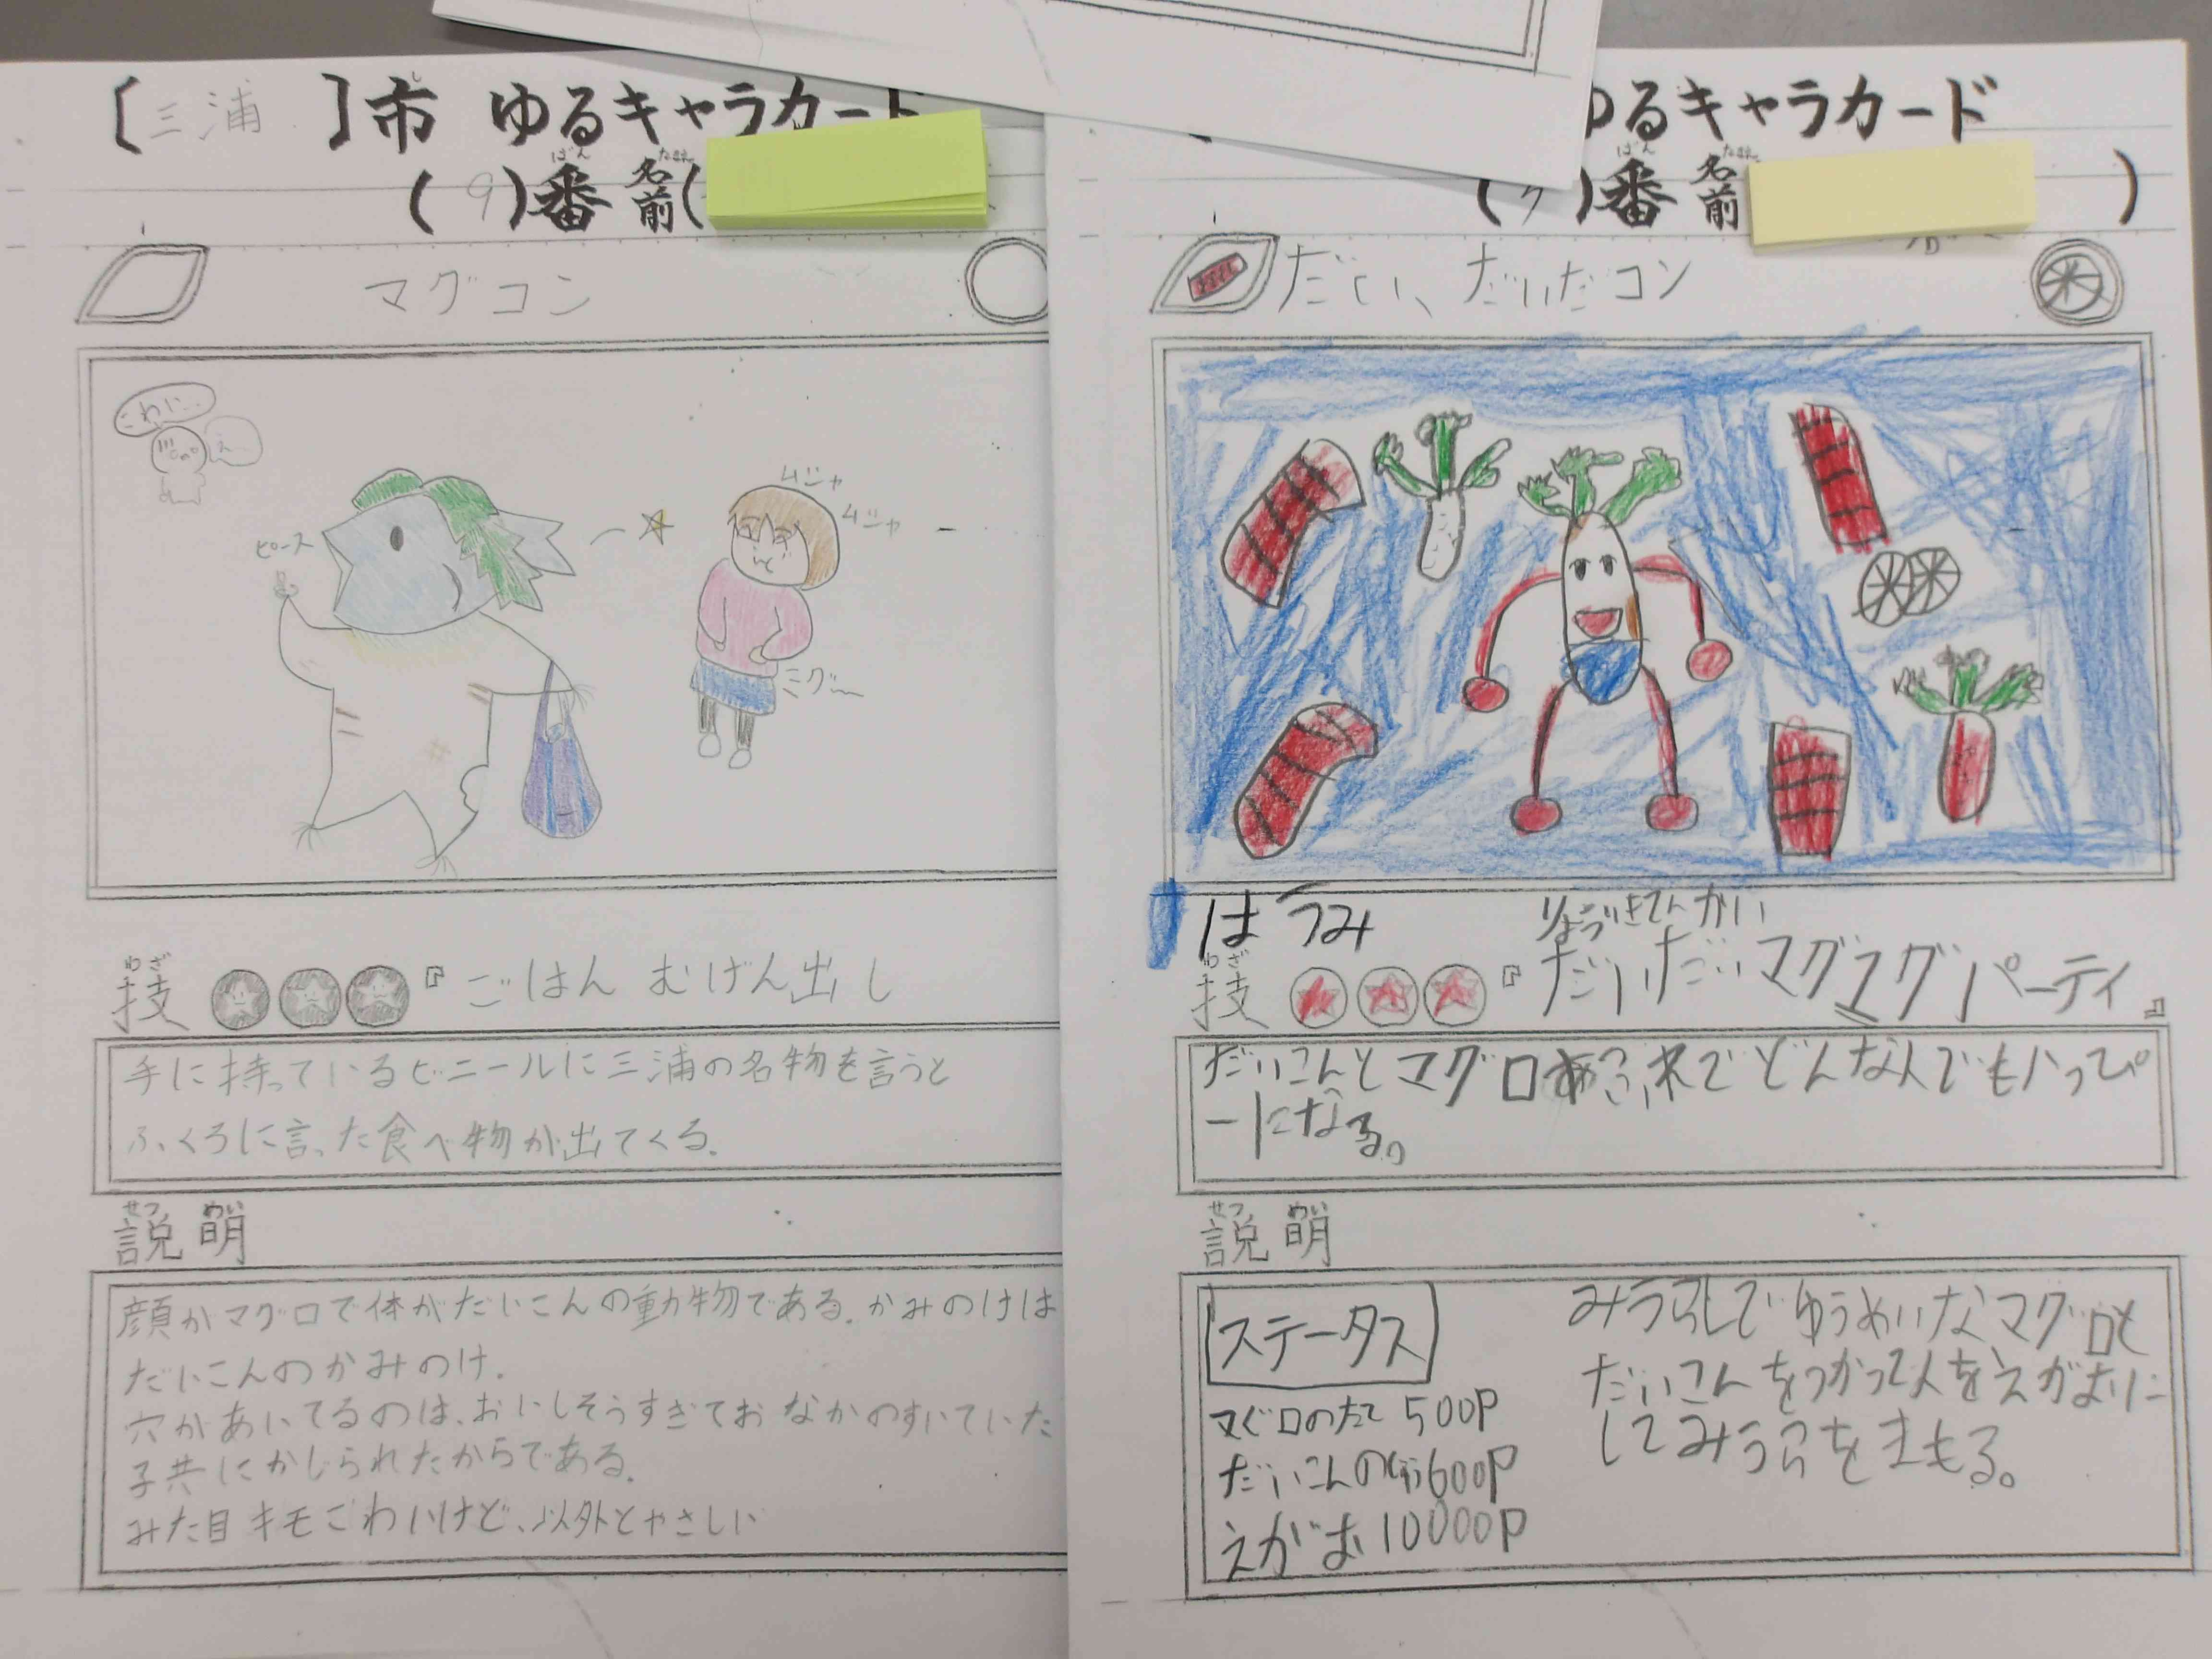 〔三浦〕市 ゆるキャラカード
(9)番 名前(
マグコン
こわに…
え…
ピース
ムシャ
ムシャ
ミグ〜
技『ごはん むげん出し
手に持っているビニールに三浦の名物を言うと
ふくろに言った食べ物が出てくる。
説明
顔がマグロで体がだいこんの動物である。かみのけは
だいこんのかみのけ。
穴があいてるのは、おいしそうすぎておなかのすいていた
子共にかじられたからである。
みた目キモこわいけど、以外とやさしい
ゆるキャラカード
番 名前 )
だい、だいだコン
はうみ
りょういきてんかい
技『だいだいマグマグパーティ』
だいこんとマグロあふれでどんな人でもハッピ
ーになる。
説明
ステータス
マグロのたて 500P
だいこんの 600P
えがお 10000P
みうらしでゆうめいなマグロと
だいこんをつかって人をえがおに
してみうらをまもる。